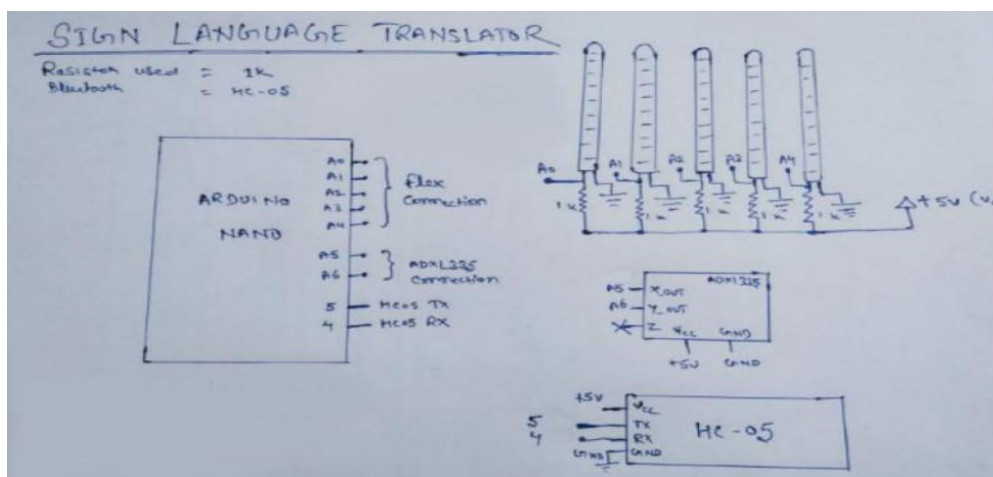 SIGN LANGUAGE TRANSLATOR
Resistor used = 1K
Bluetooth = HC-05
ARDUINO
NANO
A0
A1
A2
A3
A4
flex
Connection
A5
A6
ADXL335
Connection
5 HC05 TX
4 HC05 RX
A0
A1
A2
A2
A4
1K
1K
1K
1K
1K
+5V (V
ADXL335
A5 X_OUT
A6 Y_OUT
Z VCC GND
+5V GND
+5V VCC
5 TX
4 RX
GND GND
HC-05